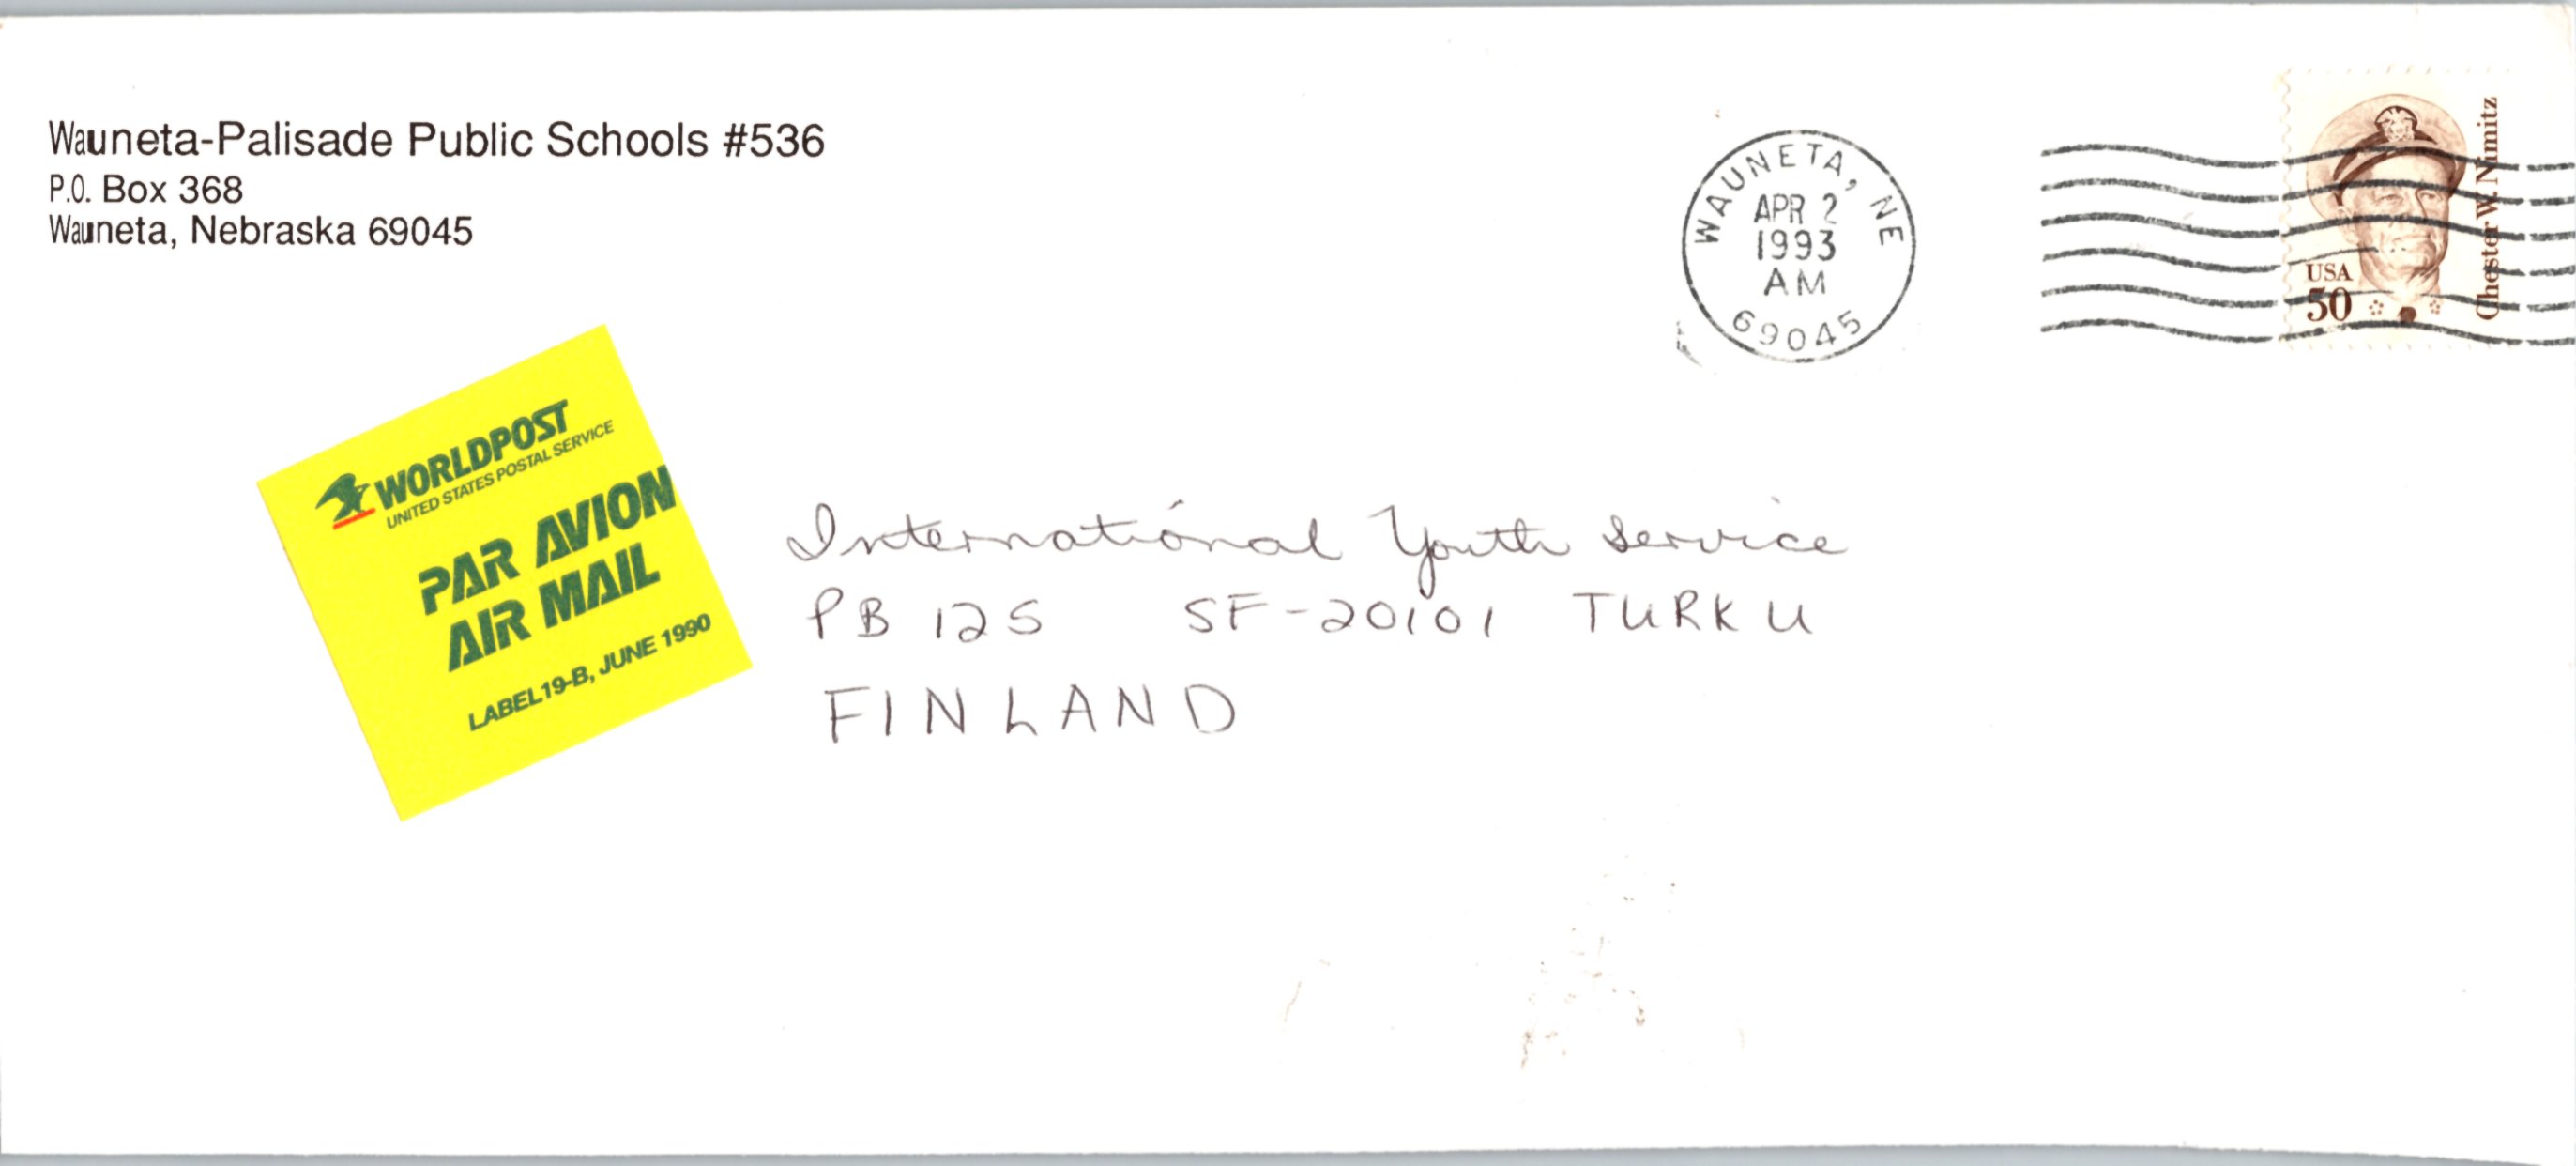 Wauneta-Palisade Public Schools #536
P.O. Box 368
Wauneta, Nebraska 69045
WAUNETA, NE
APR 2
1993
AM
69045
USA
50
Chester W. Nimitz
WORLDPOST
UNITED STATES POSTAL SERVICE
PAR AVION
AIR MAIL
LABEL 19-B, JUNE 1990
International Youth Service
PB 125 SF-20101 TURKU
FINLAND